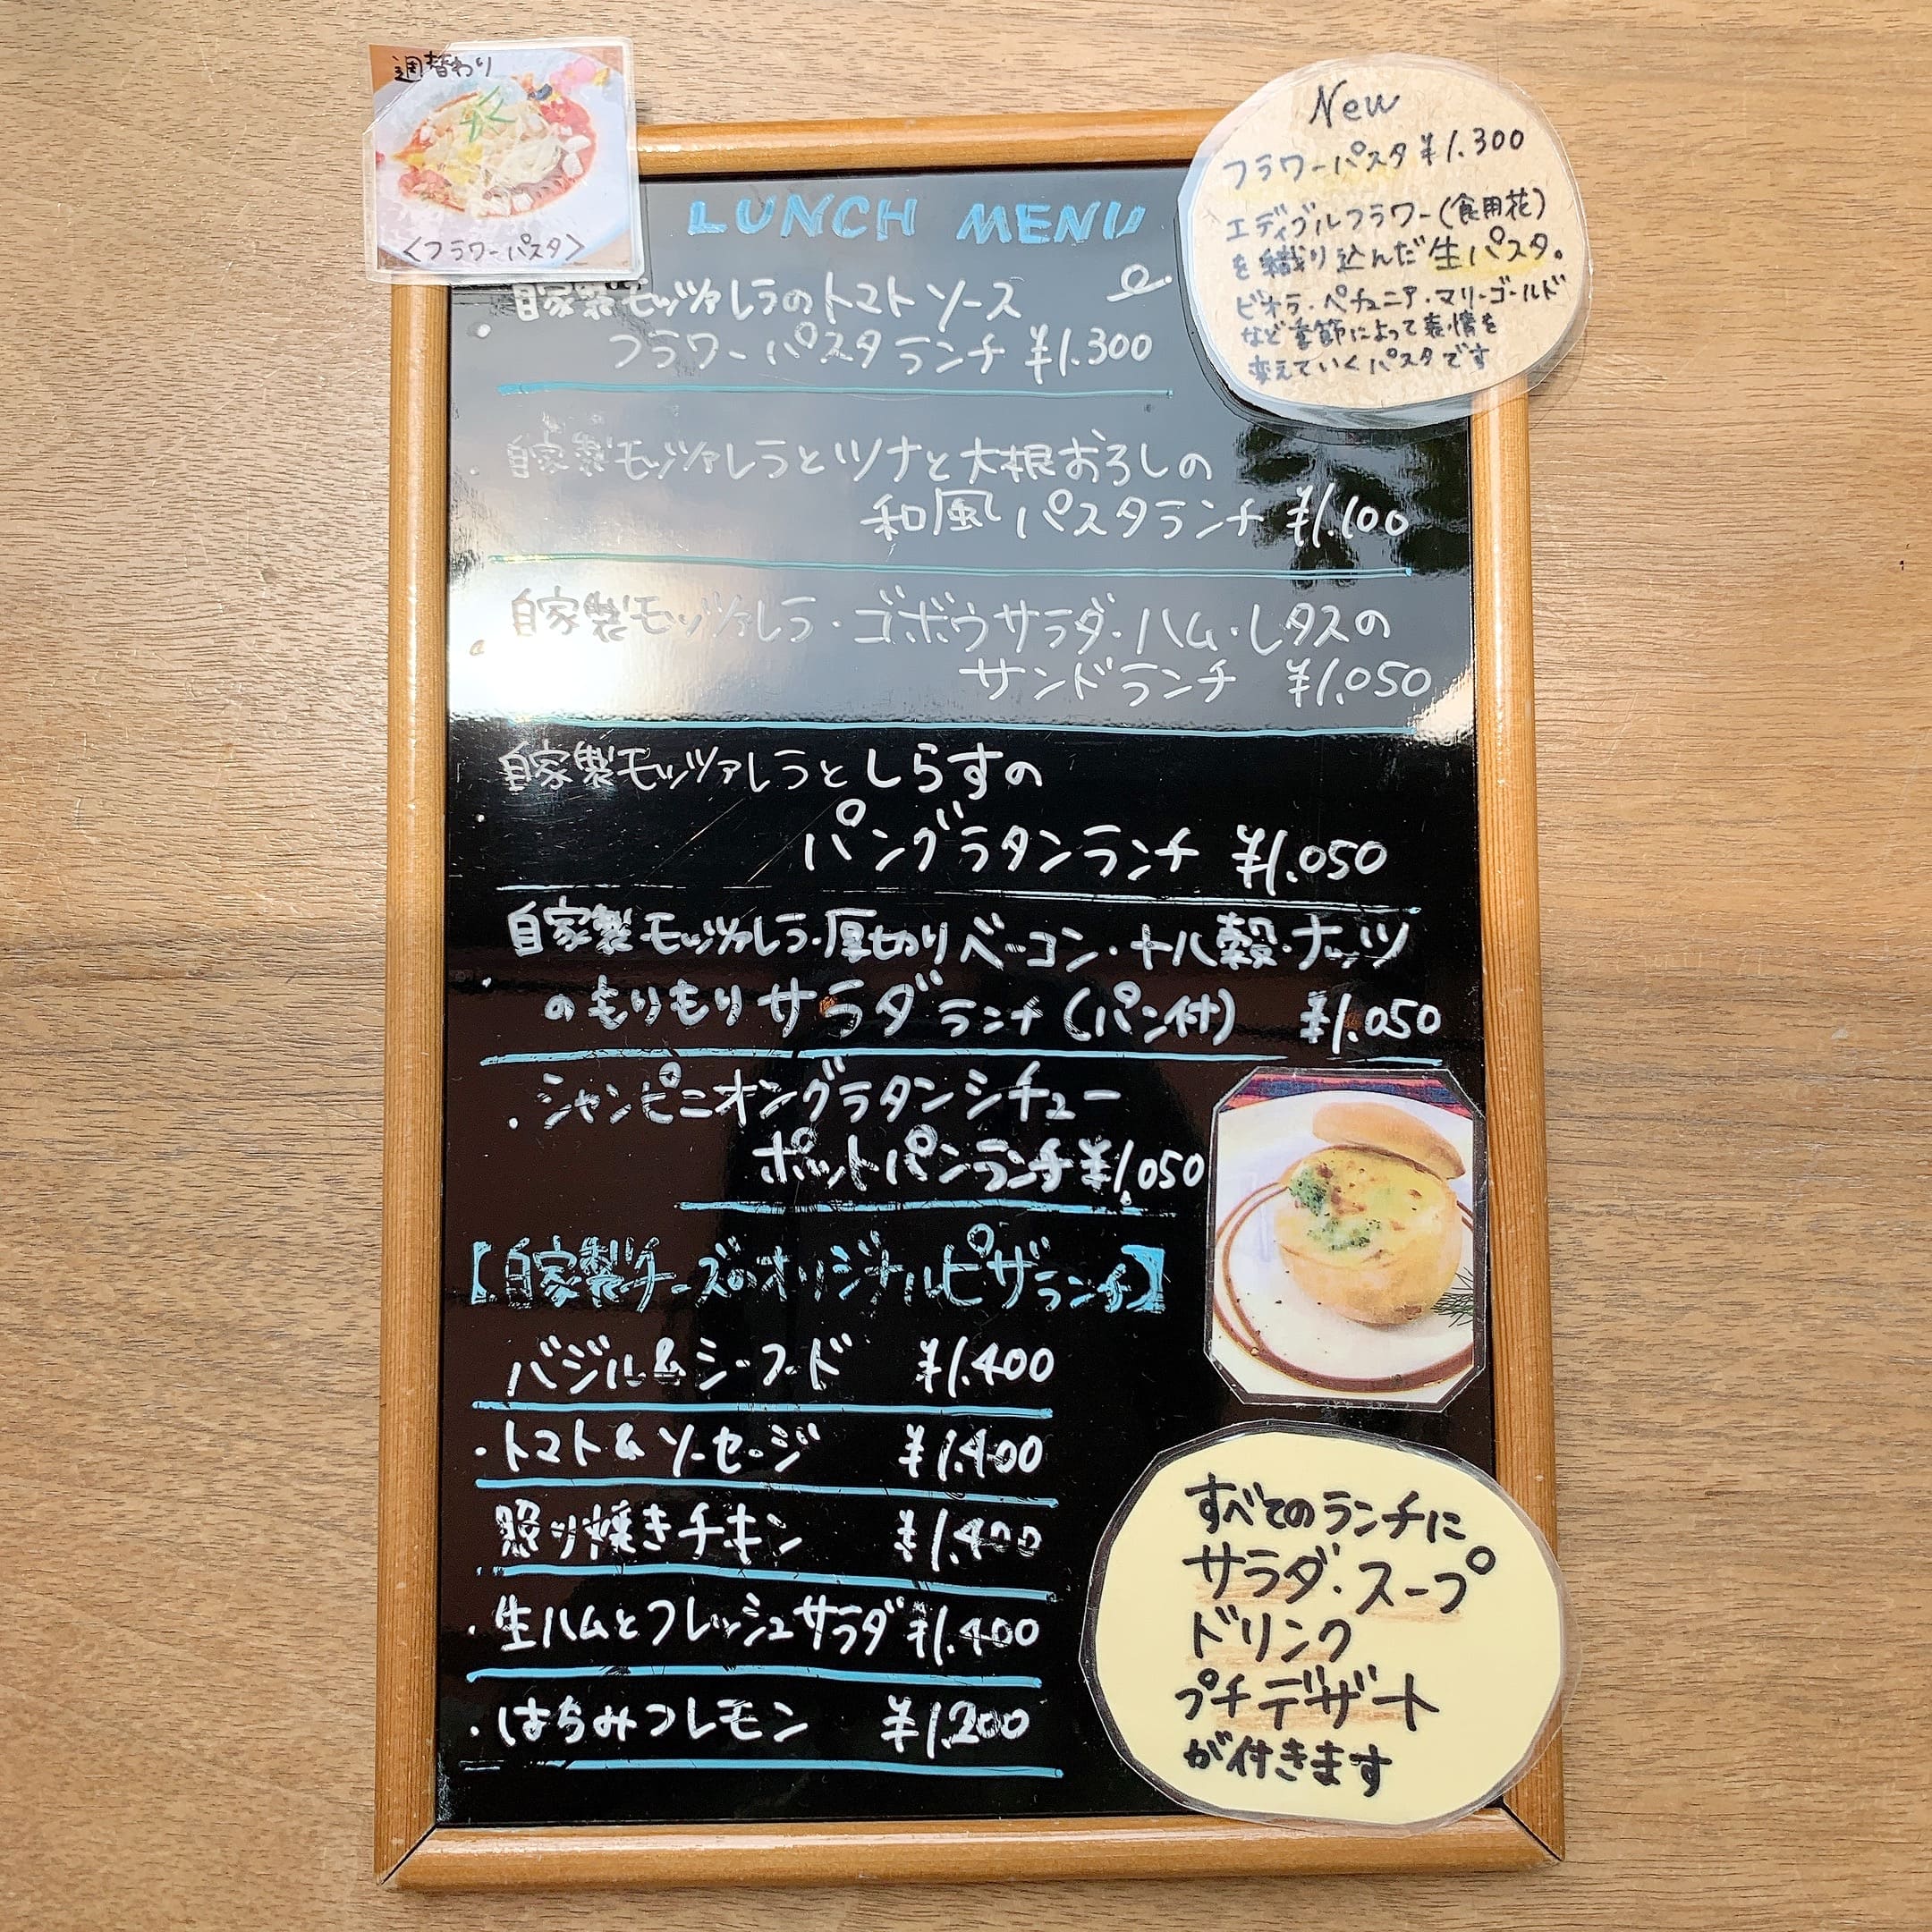 週替わり
<フラワーパスタ>
New
フラワーパスタ ¥1.300
エディブルフラワー(食用花)
を織り込んだ生パスタ。
ビオラ・ペチュニア・マリーゴールド
など季節によって表情を
変えていくパスタです
LUNCH MENU
自家製モッツァレラのトマトソース
フラワーパスタランチ ¥1.300
自家製モッツァレラとツナと大根おろしの
和風パスタランチ ¥1.100
自家製モッツァレラ・ゴボウサラダ・ハム・レタスの
サンドランチ ¥1.050
自家製モッツァレラとしらすの
パングラタンランチ ¥1.050
自家製モッツァレラ・厚切りベーコン・十八穀・ナッツ
のもりもりサラダランチ(パン付) ¥1.050
・シャンピニオングラタンシチュー
ポットパンランチ ¥1.050
【自家製チーズのオリジナルピザランチ】
バジル&シーフード ¥1.400
・トマト&ソーセージ ¥1.400
照り焼きチキン ¥1.400
・生ハムとフレッシュサラダ ¥1.400
・はちみつレモン ¥1.200
すべてのランチに
サラダ・スープ
ドリンク
プチデザート
が付きます